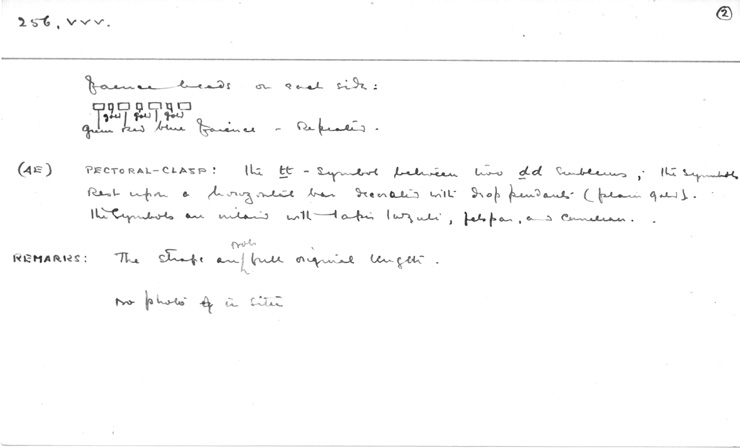 256, vvv.
②
faience beads on each side:
gold gold gold
green red blue faience - Repeated.
(AE) PECTORAL-CLASP: The tt - symbol between two dd emblems; the symbols
Rest upon a horizontal bar decorated with drop pendants (plain gold).
The symbols are inlaid with lapis lazuli, felspar, and carnelian.
prob
REMARKS: The straps are full original length.
No photo of in situ